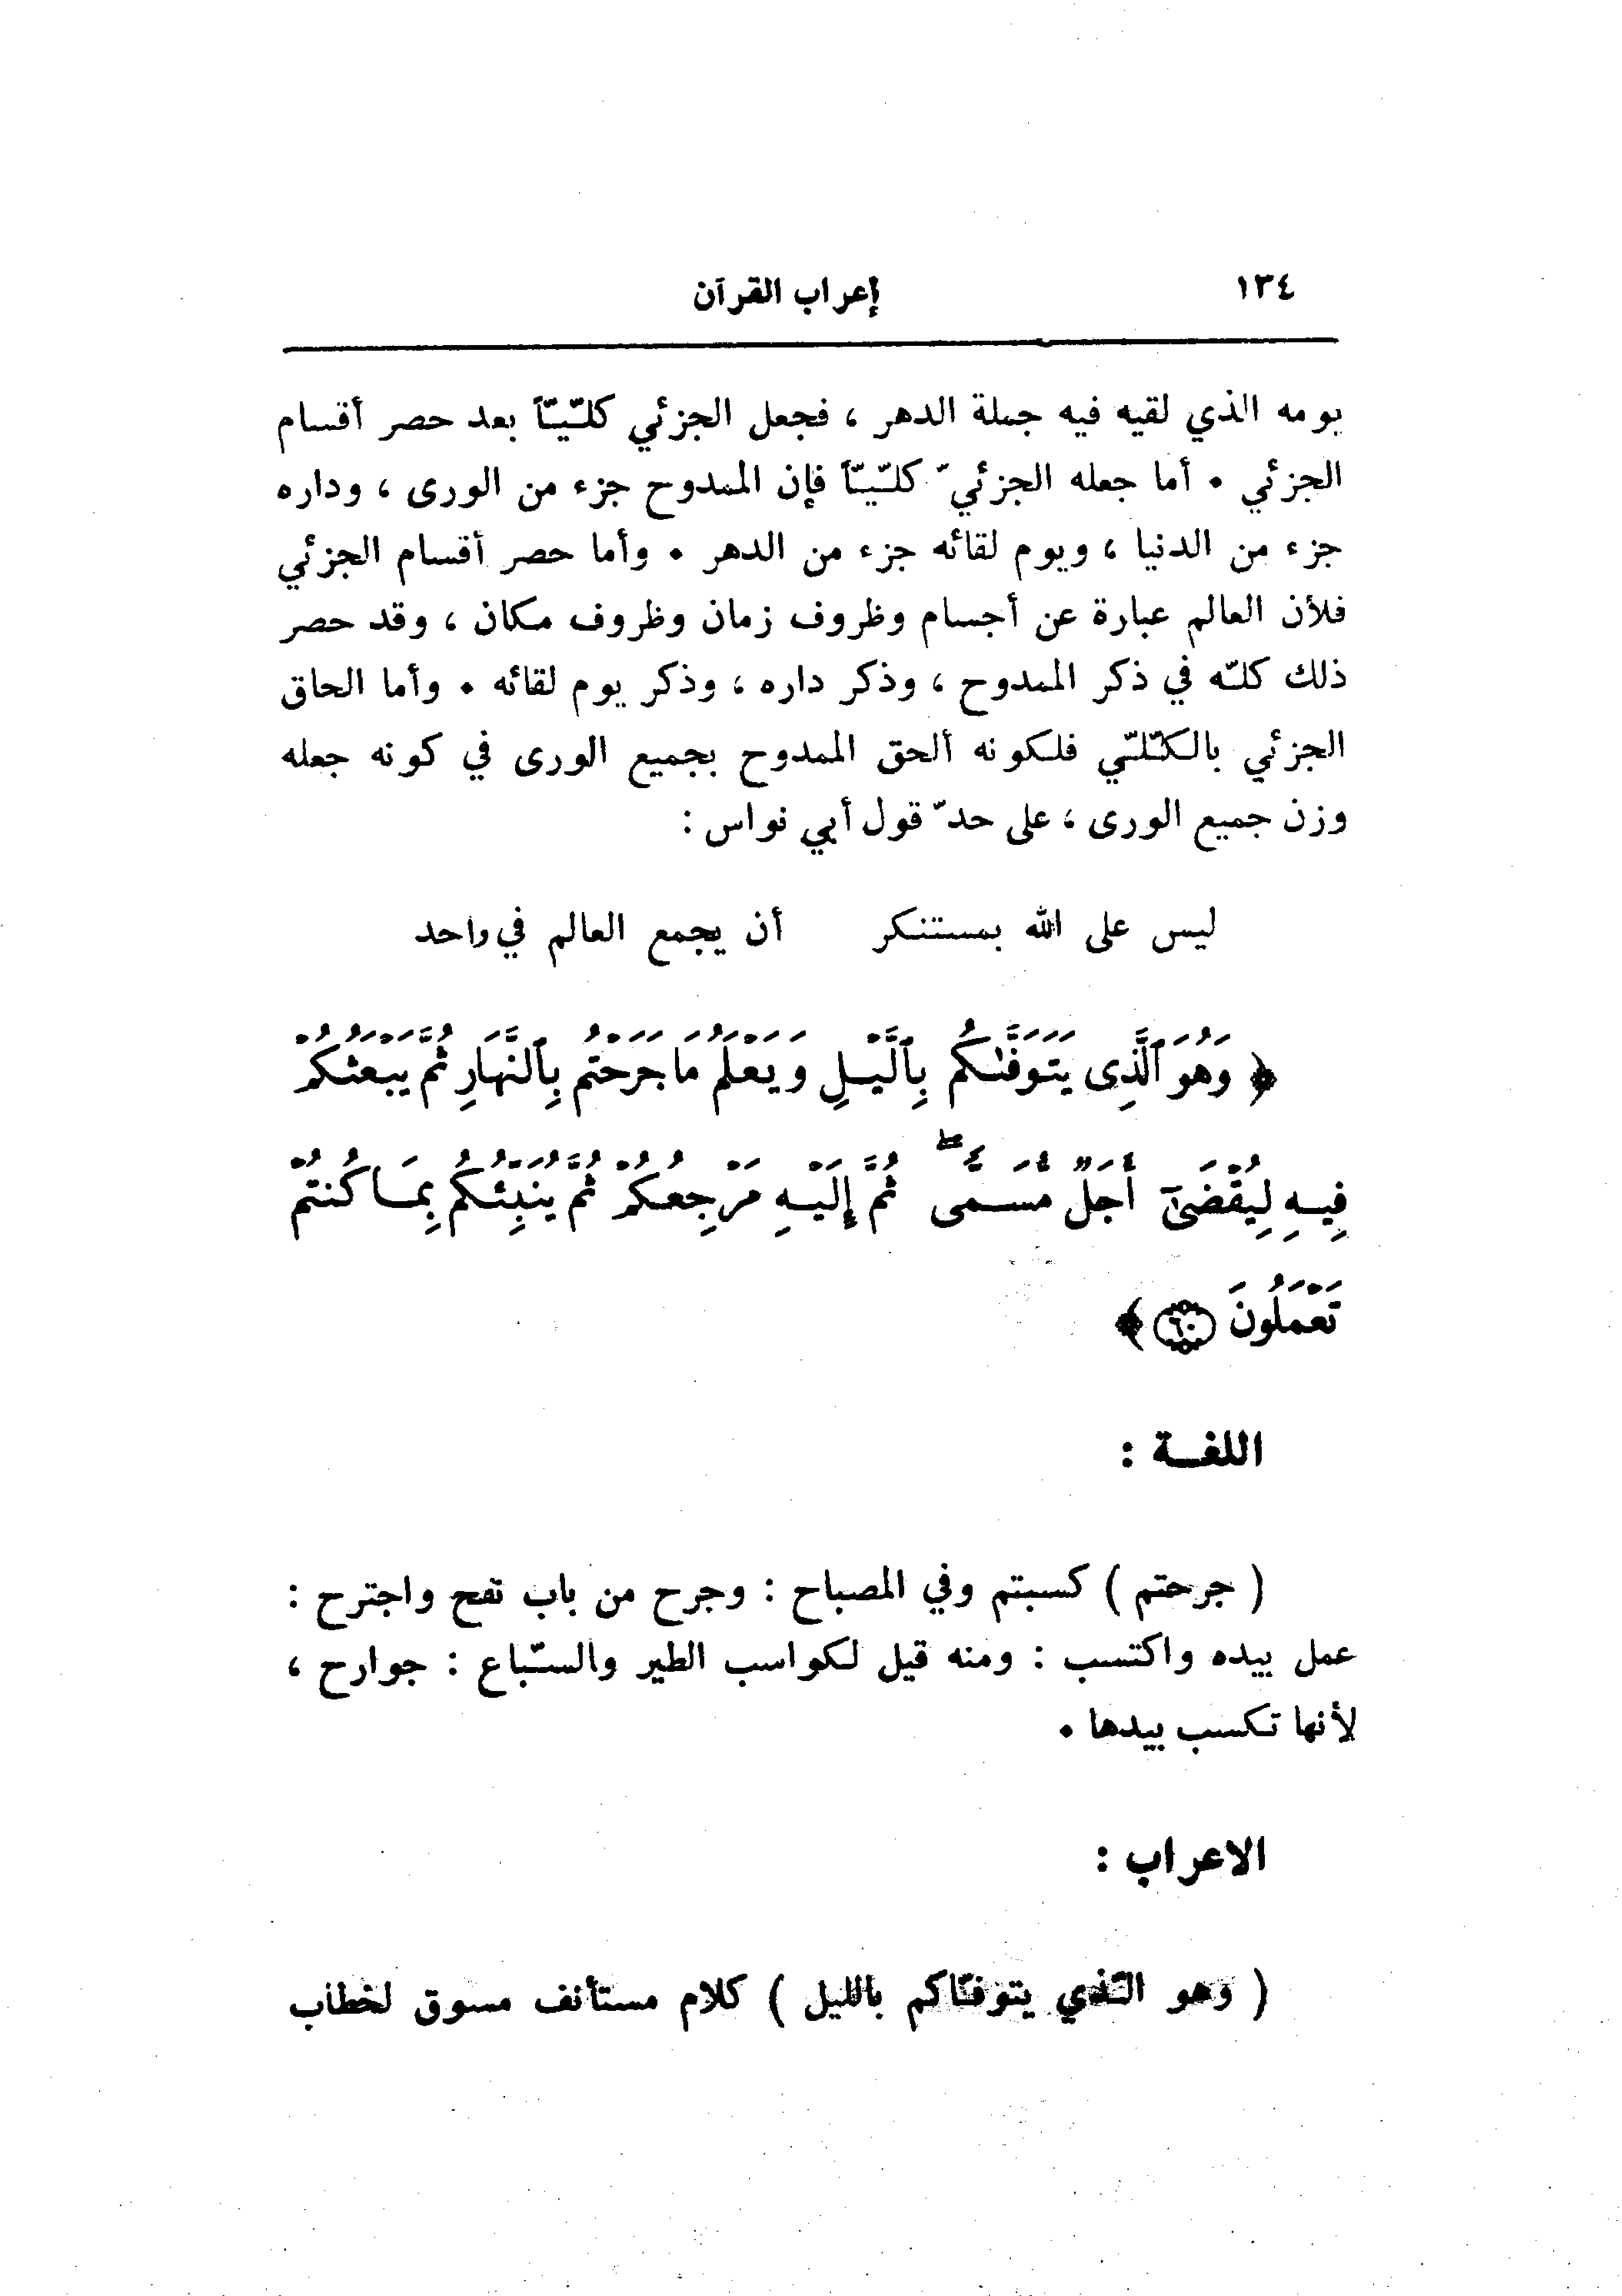 ١٣٤ إعراب القرآن
يومه الذي لقيه فيه جملة الدهر ، فجعل الجزئي كلّيّاً بعد حصر أقسام
الجزئي • أما جعله الجزئيّ كلّيّاً فإن الممدوح جزء من الورى ، وداره
جزء من الدنيا ، ويوم لقائه جزء من الدهر • وأما حصر أقسام الجزئي
فلأن العالم عبارة عن أجسام وظروف زمان وظروف مكان ، وقد حصر
ذلك كلّه في ذكر الممدوح ، وذكر داره ، وذكر يوم لقائه • وأما الحاق
الجزئي بالكلّي فلكونه ألحق الممدوح بجميع الورى في كونه جعله
وزن جميع الورى ، على حدّ قول أبي نواس :
ليس على الله بمستنكر أن يجمع العالم في واحد
﴿ وَهُوَ ٱلَّذِى يَتَوَفَّىٰكُم بِٱلَّيْلِ وَيَعْلَمُ مَا جَرَحْتُم بِٱلنَّهَارِ ثُمَّ يَبْعَثُكُمْ
فِيهِ لِيُقْضَىٰٓ أَجَلٌ مُّسَمًّى ۖ ثُمَّ إِلَيْهِ مَرْجِعُكُمْ ثُمَّ يُنَبِّئُكُم بِمَا كُنتُمْ
تَعْمَلُونَ ٦٠ ﴾
اللغـة :
( جرحتم ) كسبتم وفي المصباح : وجرح من باب نفح واجترح :
عمل بيده واكتسب : ومنه قيل لكواسب الطير والسّباع : جوارح ،
لأنها تكسب بيدها •
الاعراب :
( وهو الّذي يتوفّاكم بالليل ) كلام مستأنف مسوق لخطاب